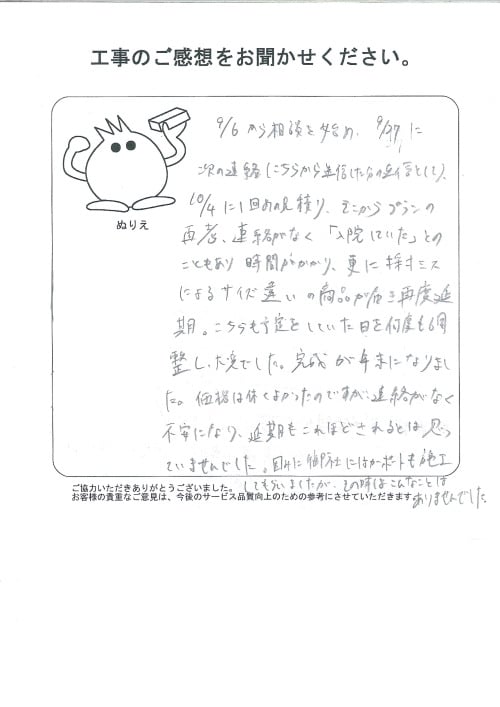 工事のご感想をお聞かせください。
ぬりえ
9/6 から相談を始め、9/27 に
次の連絡(こちらから送信した分の返信として)、
10/4 に1回目の見積り、そこからプランの
再考、連絡がなく「入院していた」との
こともあり時間がかかり、更に採寸ミス
によるサイズ違いの商品が届き再度延
期。こちらも予定をしていた日を何度も調
整し大変でした。完成が年末になりまし
た。価格は低くよかったのですが、連絡がなく
不安になり、延期もこれほどされるとは思っ
ていませんでした。R4に御社にはカーポートも施工
してもらいましたが、その時はこんなことは
ありませんでした。
ご協力いただきありがとうございました。
お客様の貴重なご意見は、今後のサービス品質向上のための参考にさせていただきます。